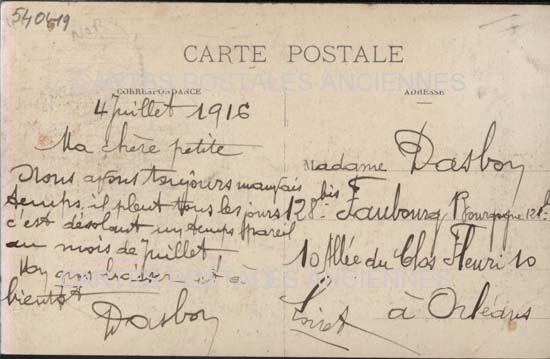 540419
CARTE POSTALE
CARTES POSTALES ANCIENNES
CORRESPONDANCE
ADRESSE
4 Juillet 1916
Ma chère petite
Nous avons toujours mauvais
temps, il pleut tous les jours
c'est désolant un temps pareil
au mois de Juillet
gros baiser et à
bientot
Dasboy
Madame Dasboy
128 bis Faubourg Bourgogne 128
10 Allée du Clos Fleuri 10
à Orléans
Loiret
CARTES POSTALES ANCIENNES